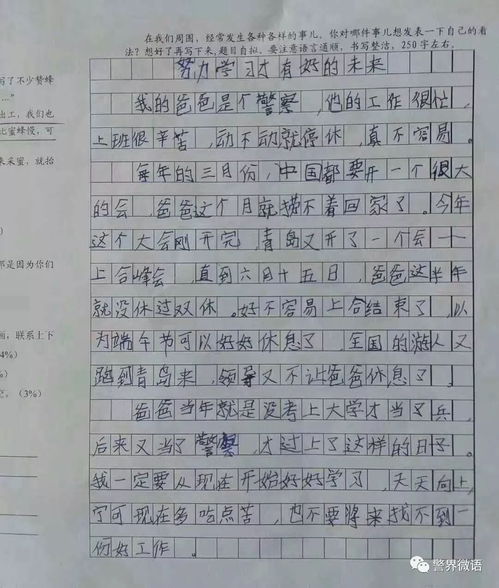 在我们周围，经常发生各种各样的事儿。你对哪件事儿想发表一下自己的看
法？想好了再写下来，题目自拟。要注意语言通顺，书写整洁，250字左右。
努力学习才有好的未来
我的爸爸是个警察，他的工作很忙，
上班很辛苦，动不动就停休，真不容易。
每年的三月份，中国都要开一个很大
的会，爸爸这个月就捞不着回家了。今年
这个大会刚开完，青岛又开了一个会——
上合峰会，直到六月十五日，爸爸这半年
就没休过双休。好不容易上合结束了，以
为端午节可以好好休息了，全国的游人又
跑到青岛来，领导又不让爸爸休息了。
爸爸当年就是没考上大学才当了兵，
后来又当了警察，才过上了这样的日子。
我一定要从现在开始好好学习，天天向上，
宁可现在多吃点苦，也不要将来找不到一
份好工作。
写了不少赞蜂
出工，我们也
比蜜蜂慢，可
来采蜜，就抬
那是因为你们
画，联系上下
4%）
%）
（3%）
警界微语